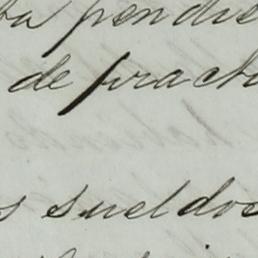 ba pendie
de practi
s sueldos